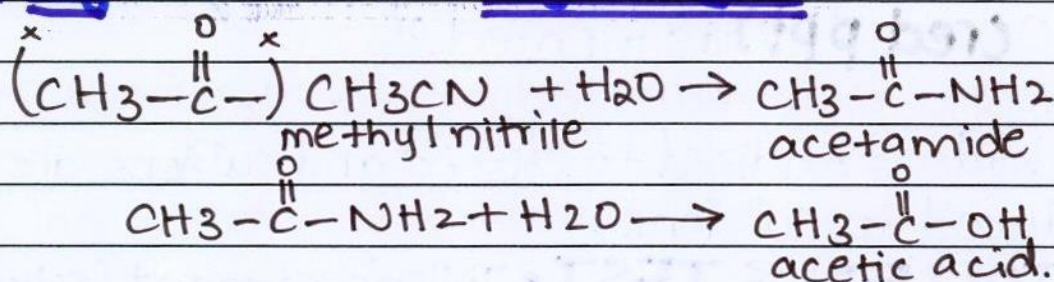 x O x O
(CH3-C-) CH3CN + H2O → CH3-C-NH2
methyl nitrile acetamide
O O
CH3-C-NH2 + H2O → CH3-C-OH
acetic acid.